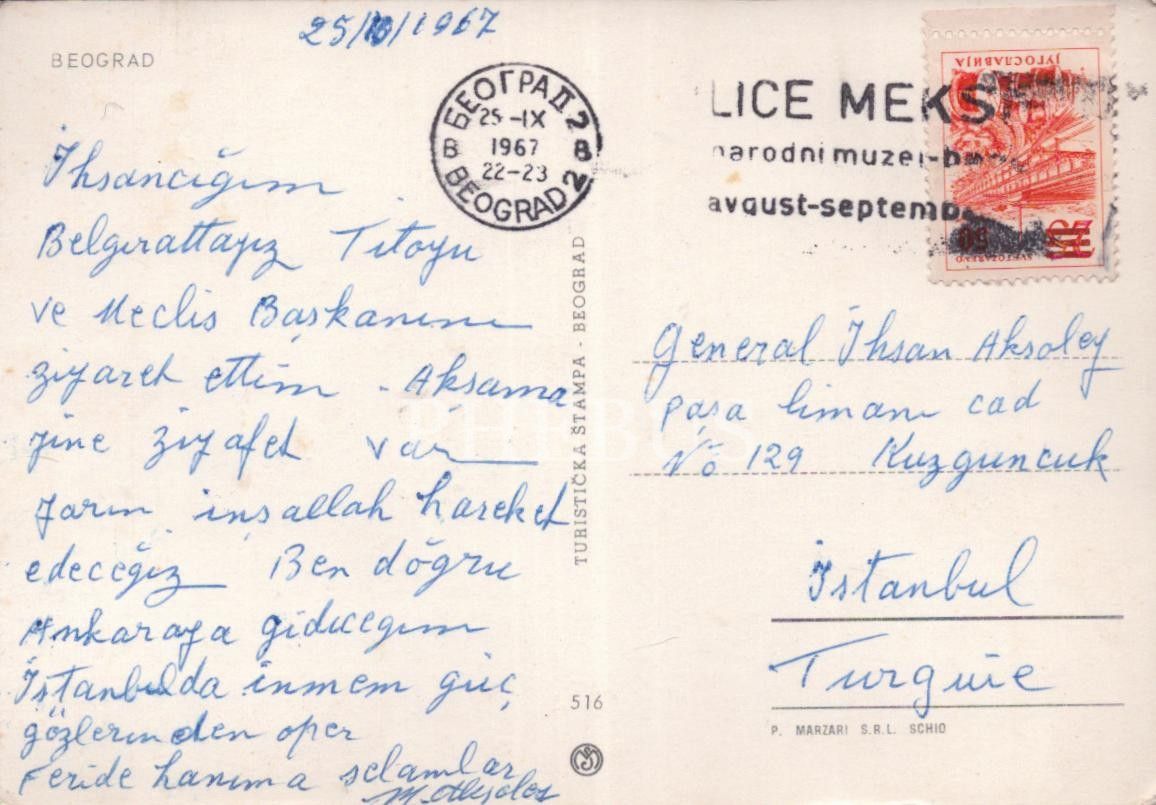 25/9/1967
BEOGRAD
БЕОГРАД 2
25-IX
1967
22-23
B B
BEOGRAD 2
LICE MEKSI
narodni muzej-b
avgust-septemb
ЈУГОСЛАВИЈА
50
SVETOZAREVO
İhsancığım
Belgırattayız Titoyu
ve Meclis Başkanını
ziyaret ettim - Aksama
yine ziyafet var
yarın inşallah hareket
edeceğiz Ben döğru
Ankaraya gidicegım
İstanbulda inmem güç
gözlerinden oper
Feride hanıma selamlar
TURISTIČKA ŠTAMPA - BEOGRAD
516
General İhsan Aksoley
paşa limanı cad
No 129 Kuzguncuk
İstanbul
Turguie
P. MARZARI S.R.L. SCHIO
PHEBUS